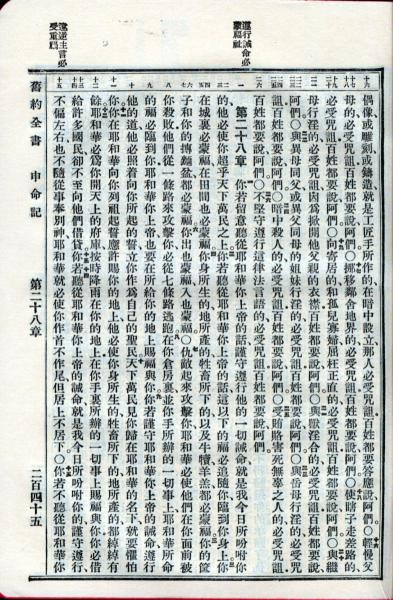 遵行誡命必
蒙福祉
違逆主言必
受重禍
偶像或雕刻或鑄造就是工匠手所作的在暗中設立那人必受咒詛百姓都要答應說阿們○輕慢父
母的必受咒詛百姓都要說阿們○挪移鄰舍地界的必受咒詛百姓都要說阿們○使瞎子走差路的
必受咒詛百姓都要說阿們○向寄居的和孤兒寡婦屈枉正直的必受咒詛百姓都要說阿們○與繼
母行淫的必受咒詛因爲掀開他父親的衣襟百姓都要說阿們○與獸淫合的必受咒詛百姓都要說
阿們○與異母同父或異父同母的姐妹行淫的必受咒詛百姓都要說阿們○與岳母行淫的必受咒
詛百姓都要說阿們○暗中殺人的必受咒詛百姓都要說阿們○受賄賂害死無辜之人的必受咒詛
百姓都要說阿們○不堅守遵行這律法言語的必受咒詛百姓都要說阿們
第二十八章 你若留意聽從耶和華你上帝的話謹守遵行他的一切誡命就是我今日所吩咐你
的他必使你超乎天下萬民之上你若聽從耶和華你上帝的話這以下的福必追隨你臨到你身上你
在城裏必蒙福在田間也必蒙福你身所生的地所產的牲畜所下的以及牛犢羊羔都必蒙福你的筐
子和你的摶麵盆都必蒙福你出也蒙福入也蒙福○仇敵起來攻擊你耶和華必使他們在你面前被
你殺敗他們從一條路來攻擊你必從七條路逃跑在你倉房裏並你手所辦的一切事上耶和華所命
的福必臨到你耶和華你上帝也要在所給你的地上賜福與你你若謹守耶和華你上帝的誡命遵行
他的道他必照着向你所起的誓立你作爲自己的聖民天下萬民見你歸在耶和華的名下就要懼怕
你你在耶和華向你列祖起誓應許賜你的地上他必使你身所生的牲畜所下的地所產的都綽綽有
餘耶和華必爲你開天上的府庫按時降雨在你的地上在你手裏所辦的一切事上賜福與你你必借
給許多國民卻不至向他們借貸你若聽從耶和華你上帝的誡命就是我今日所吩咐你的謹守遵行
不偏左右也不隨從事奉別神耶和華就必使你作首不作尾但居上不居下○你若不聽從耶和華你
舊約全書 申命記 第二十八章 二百四十五